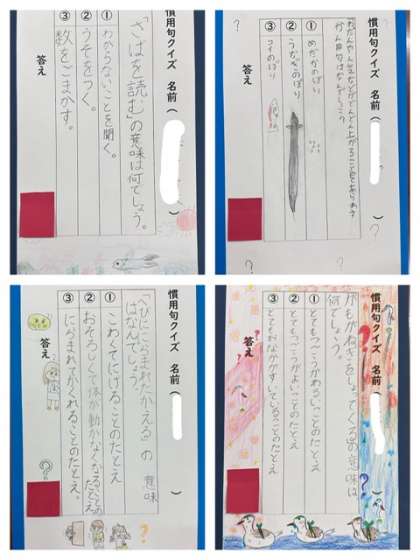 慣用句クイズ 名前（　）
「さばを読む」の意味は何でしょう。
① わからないことを聞く。
② うそをつく。
③ 数をごまかす。
答え
慣用句クイズ 名前（　）
ねだんや人気などがどんどん上がることを表す
かん用句はなんでしょう?
① めだかのぼり
② うなぎのぼり
③ コイのぼり
答え
慣用句クイズ 名前（　）
「へびににらまれたかえる」の意味
はなんでしょう。
① こわくてにげることのたとえ
② おそろしくて体が動かなくなることの
たとえ
③ にらまれてかくれることのたとえ。
答え
慣用句クイズ 名前（　）
かもがねぎをしょってくるの意味は
何でしょう。
① とてもつごうがわるいことのたとえ
② とてもつごうがよいことのたとえ
③ とてもおなかがすいていることのたとえ
答え